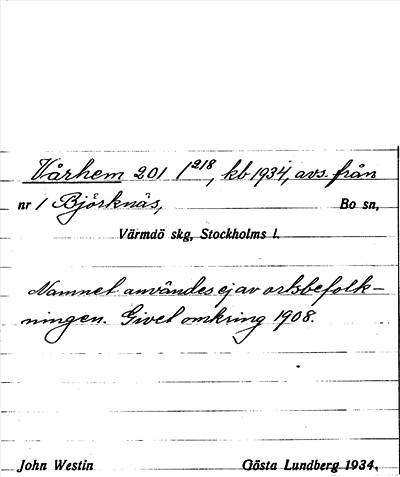 Vårhem 201 1²¹⁸, kb 1934, avs. från
nr 1 Björknäs, Bo sn,
Värmdö skg, Stockholms l.
Namnet användes ej av ortsbefolk-
ningen. Givet omkring 1908.
John Westin Gösta Lundberg 1934.